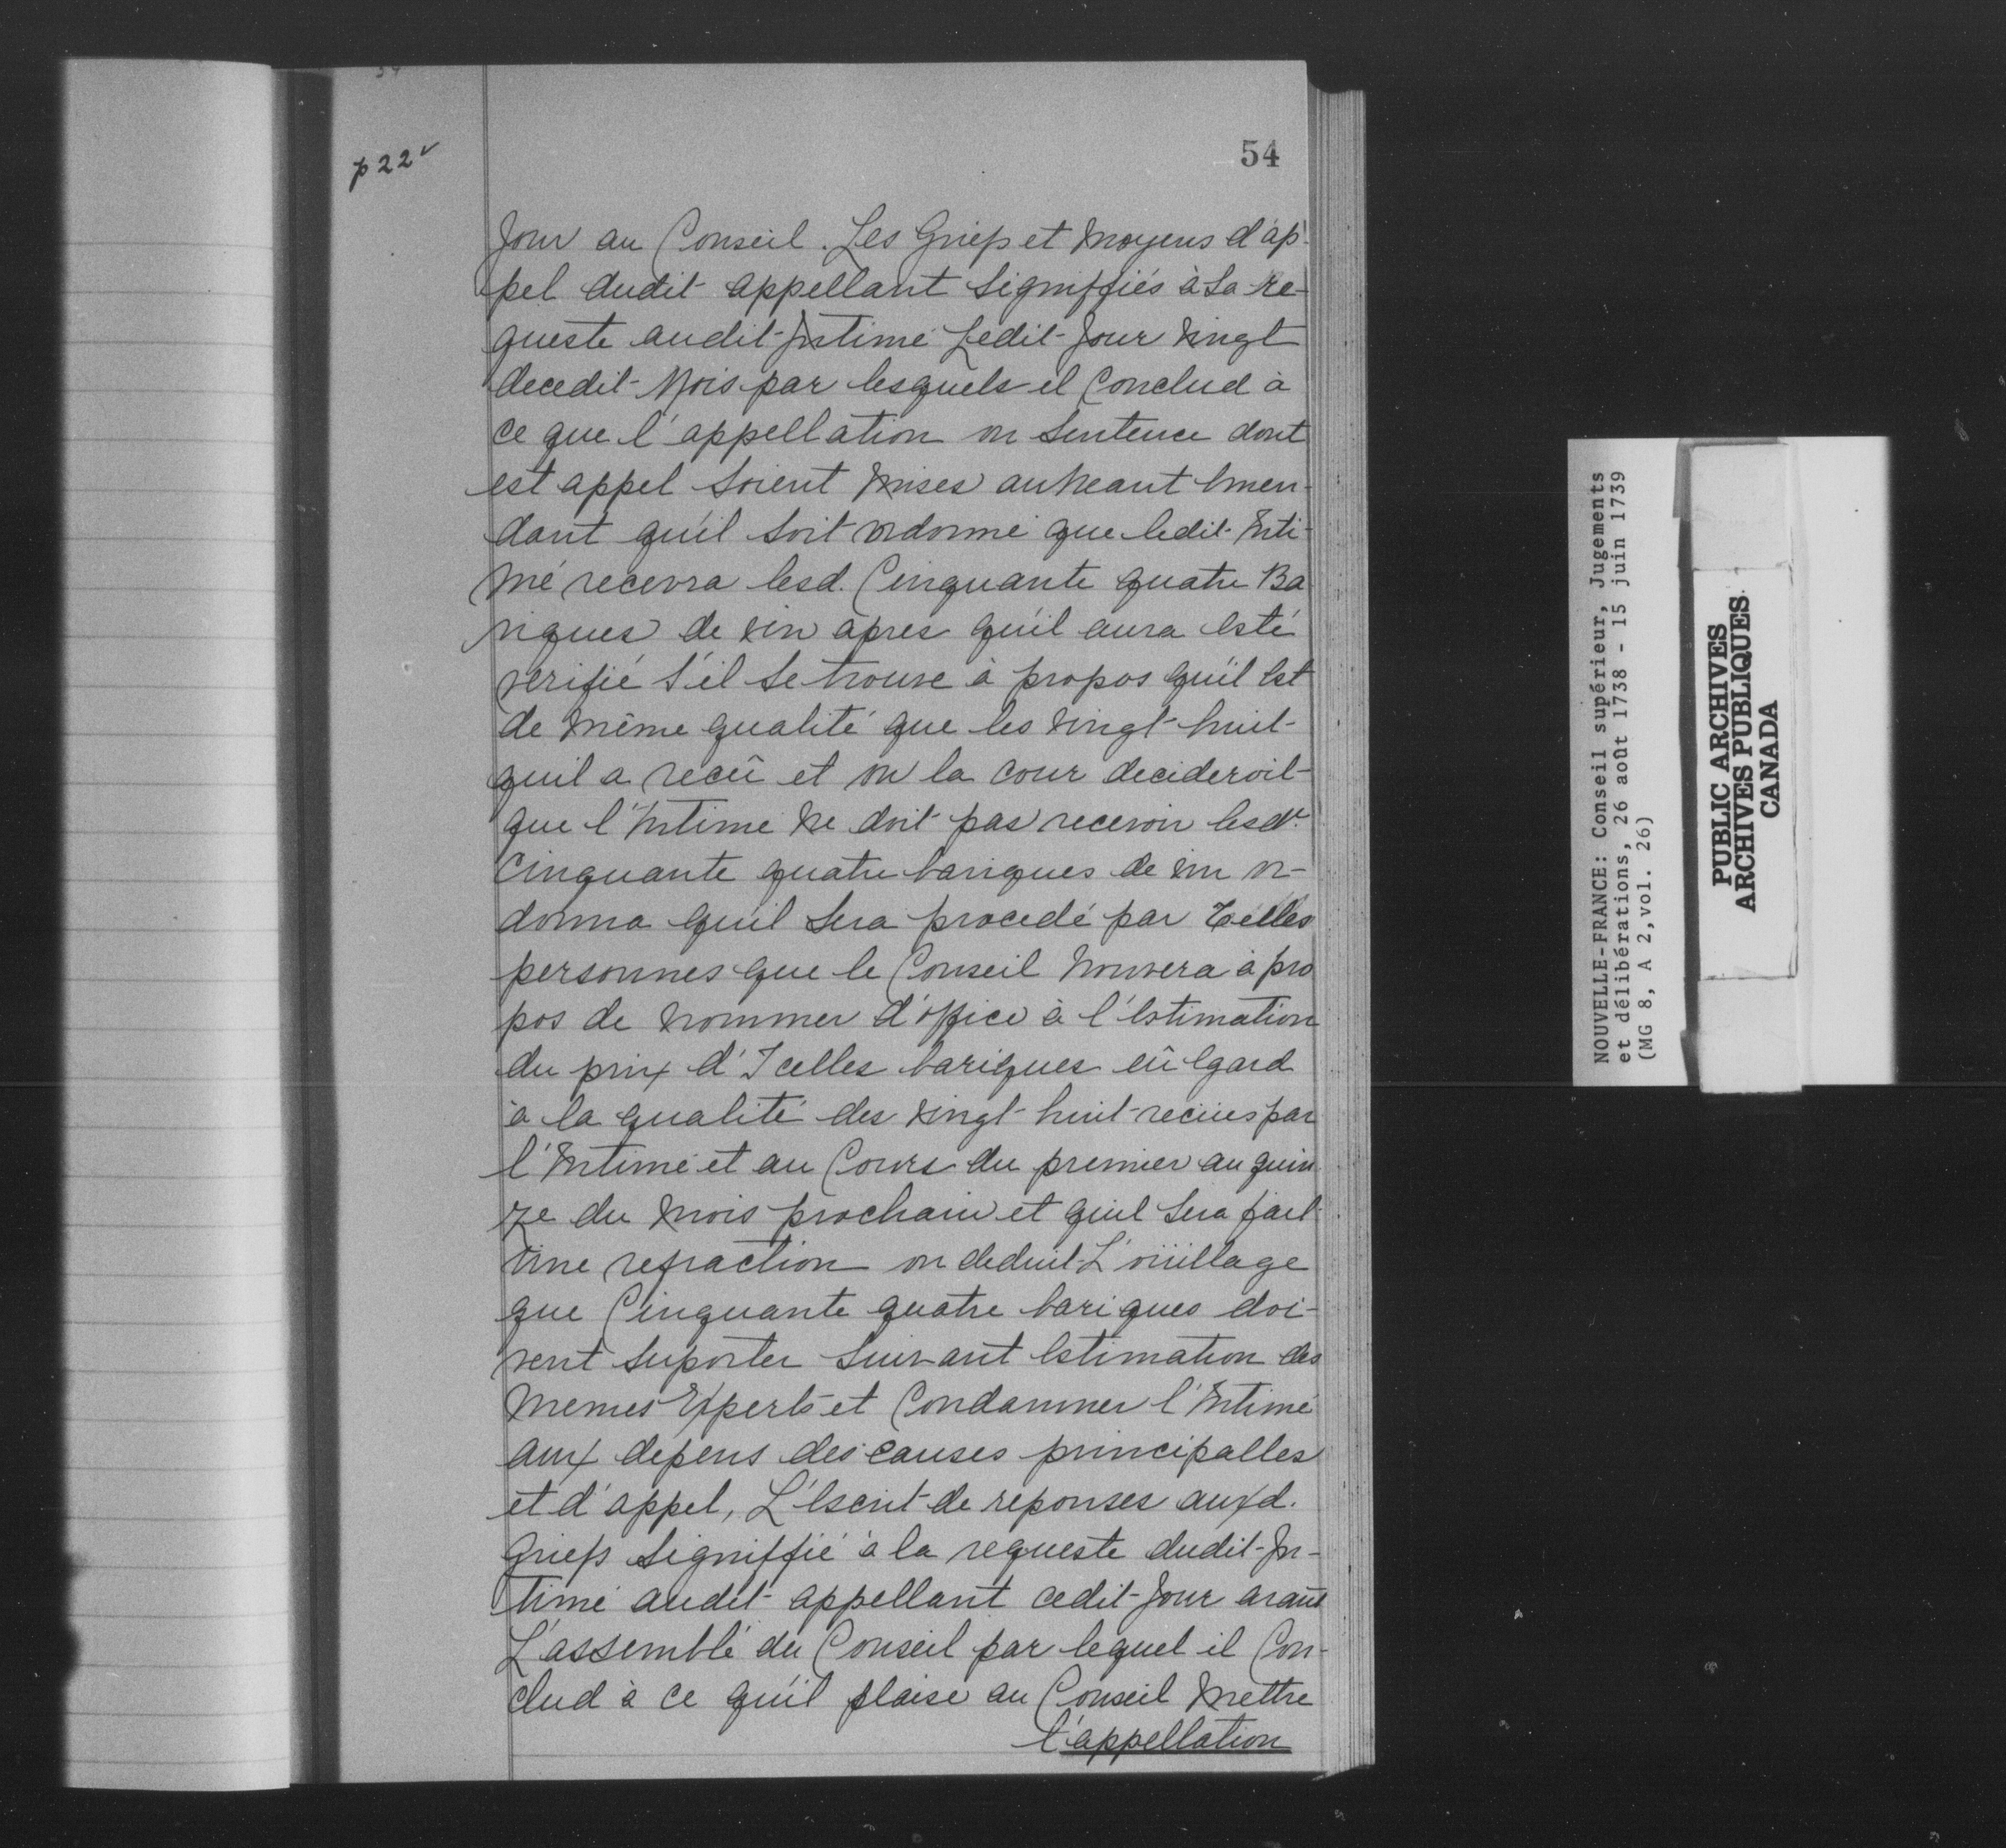 p 22v
54
Jour au Conseil. Les Griefs et Moyens d'ap-
pel dudit appellant Signiffiés à Sa re-
queste audit Intimé Ledit Jour Vingt
decedit Mois par lesquels il Conclud à
ce que l'appellation ou Sentence dont
est appel Soient Mises au Neant Emen-
dant qu'il Soit ordonné que ledit Inti-
mé recevra lesd. Cinquante quatre Ba
riques de vin après qu'il aura Esté
verifié S'il Se trouve à propos qu'il Est
de même qualité que les vingt-huit
quil a recû et ou la cour decideroit
que l'Intime Ne doit pas recevoir lesdt
Cinquante quatre bariques de vin or-
donna qu'il Sera procedé par Telles
personnes que le Conseil trouvera à pro
pos de Nommer d'office à l'Estimation
du prix d'Icelles bariques eû Egard
à la qualité des vingt-huit recües par
l'Intimé et au Cours du premier au quin
ze du Mois prochain et quil Sera fait
Une refraction ou deduit L'oüillage
que Cinquante quatre bariques doi-
vent Suporter Suivant Estimation des
Memes Experts et Condamner l'Intimé
aux depens des causes principalles
et d'appel, L'Escrit de reponses auxd.
Griefs Signiffié à la requeste dudit In-
timé audit appellant cedit Jour avant
L'assemblé du Conseil par lequel il Con-
clud à ce qu'il plaise au Conseil Mettre
l'appellation
NOUVELLE-FRANCE: Conseil supérieur, Jugements
et délibérations, 26 août 1738 - 15 juin 1739
(MG 8, A 2, vol. 26)
PUBLIC ARCHIVES
ARCHIVES PUBLIQUES
CANADA